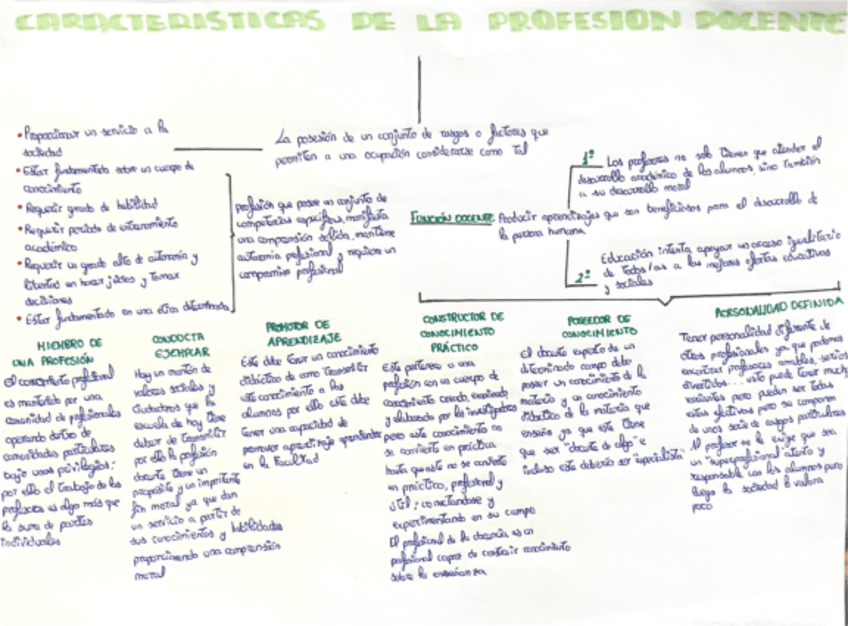 CARACTERISTICAS DE LA PROFESION DOCENTE
La posesión de un conjunto de rasgos o factores que
permiten a una ocupación considerarse como tal
• Proporcionar un servicio a la
sociedad
• Estar fundamentado sobre un cuerpo de
conocimiento
• Requerir grado de habilidad
• Requerir periodo de entrenamiento
académico
• Requerir un grado alto de autonomía y
libertad en hacer juicios y tomar
decisiones
• Estar fundamentado en una ética determinada
profesión que posee un conjunto de
competencias específicas, manifiesta
una comprensión sólida, mantiene
autonomía profesional y requiere un
compromiso profesional
FUNCIÓN DOCENTE: Producir aprendizajes que son beneficiosos para el desarrollo de
la persona humana
1º Los profesores no solo tienen que atender el
desarrollo académico de los alumnos, sino también
a su desarrollo moral
2º Educación intenta apoyar un acceso igualitario
de todos/as a las mejores ofertas educativas
y sociales
MIEMBRO DE
UNA PROFESIÓN
El conocimiento profesional
es mantenido por una
comunidad de profesionales
operando dentro de
comunidades particulares
bajo unos privilegios;
por ello el trabajo de los
profesores es algo más que
la suma de partes
individuales
CONDUCTA
EJEMPLAR
Hay un montón de
valores sociales y
ciudadanos que la
escuela de hoy tiene
deber de transmitir
por ello la profesión
docente tiene un
propósito y un importante
fin moral ya que dan
un servicio a partir de
sus conocimientos y habilidades
proporcionando una comprensión
moral
PROMOTOR DE
APRENDIZAJE
Este debe tener un conocimiento
didáctico de como transmitir
este conocimiento a los
alumnos por ello este debe
tener una capacidad de
promover aprendizaje
en la facultad
CONSTRUCTOR DE
CONOCIMIENTO
PRÁCTICO
Este pertenece a una
profesión con un cuerpo de
conocimiento creado, examinado
y elaborado por los investigadores
pero este conocimiento no
se convierte en práctica
hasta que este no se convierte
en práctico, profesional y
útil; conectandose y
experimentando en su campo
El profesional de la docencia es un
profesional capaz de construir conocimiento
sobre la enseñanza
POSEEDOR DE
CONOCIMIENTO
El docente experto de un
determinado campo debe
poseer un conocimiento de la
materia y un conocimiento
didáctico de la materia que
enseña ya que este tiene
que ser "docente de algo" e
incluso este debería ser "especialista"
PERSONALIDAD DEFINIDA
Tener personalidad diferente de
otros profesionales ya que podemos
encontrar profesores amables, serios,
divertidos... esto puede tener muchas
variantes pero pueden ser todas
estas efectivas pero se componen
de unos serie de rasgos particulares
Al profesor se le exige que sea
un "superprofesional" atento y
responsable con los alumnos pero
luego la sociedad le valora
poco